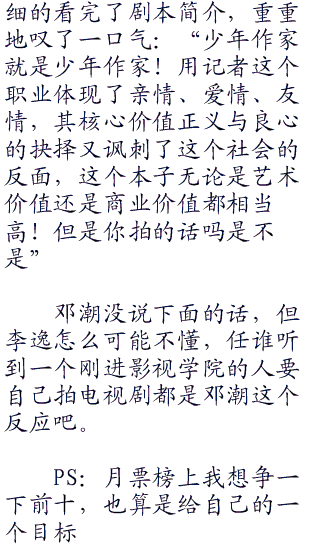 细的看完了剧本简介，重重
地叹了一口气：“少年作家
就是少年作家！用记者这个
职业体现了亲情、爱情、友
情，其核心价值正义与良心
的抉择又讽刺了这个社会的
反面，这个本子无论是艺术
价值还是商业价值都相当
高！但是你拍的话吗是不
是”
邓潮没说下面的话，但
李逸怎么可能不懂，任谁听
到一个刚进影视学院的人要
自己拍电视剧都是邓潮这个
反应吧。
PS：月票榜上我想争一
下前十，也算是给自己的一
个目标